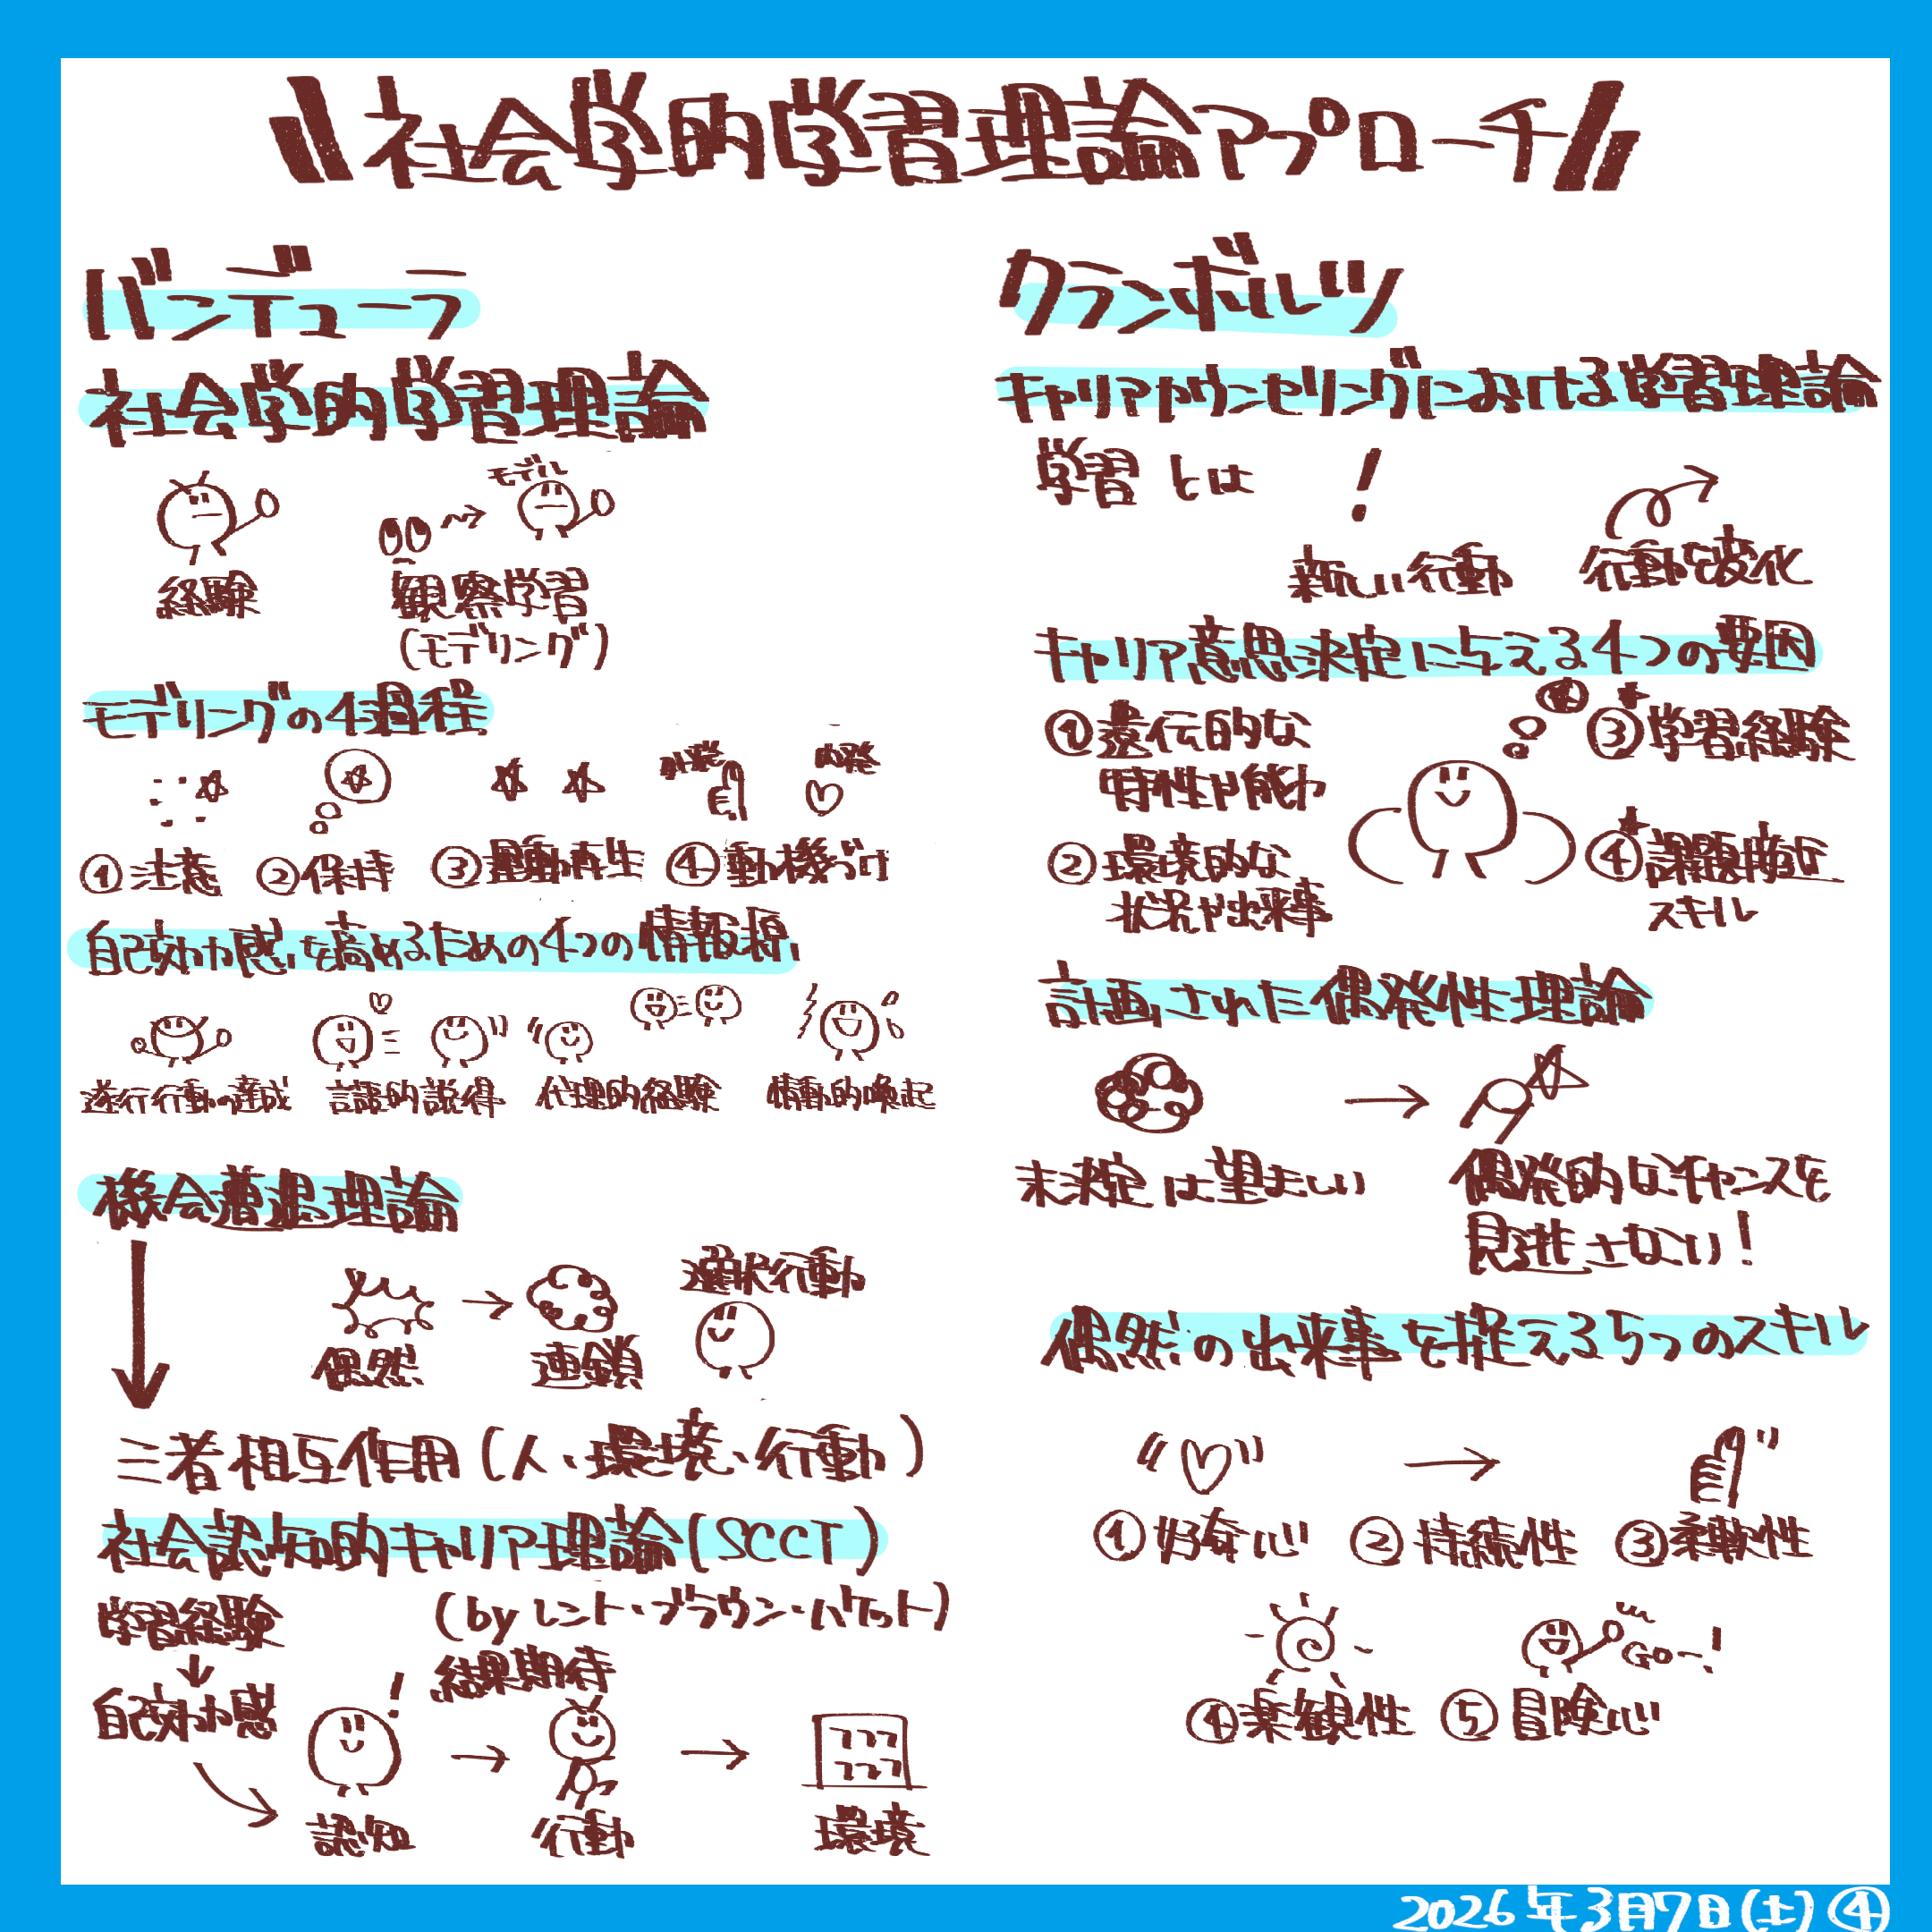 社会学的学習理論アプローチ
バンデューラ
社会学的学習理論
モデル
経験
観察学習
(モデリング)
モデリングの4過程
①注意 ②保持 ③運動再生 ④動機づけ
自己効力感を高めるための4つの情報源
遂行行動の達成 言語的説得 代理的経験 情動的喚起
機会遭遇理論
選択行動
偶然 連鎖
三者相互作用(人・環境・行動)
社会認知的キャリア理論(SCCT)
(by レント・ブラウン・ハケット)
学習経験
自己効力感
! 結果期待
認知 行動 環境
クランボルツ
キャリアカウンセリングにおける学習理論
学習とは !
新しい行動 行動が変化
キャリア意思決定に与える4つの要因
①遺伝的な
特性や能力
②環境的な
状況や出来事
③学習経験
④課題接近
スキル
計画された偶発性理論
未決定は望ましい
偶発的なチャンスを
見逃さない!
偶然の出来事を捉える5つのスキル
①好奇心 ②持続性 ③柔軟性
GO〜!
④楽観性 ⑤冒険心
2026年3月7日(土)④